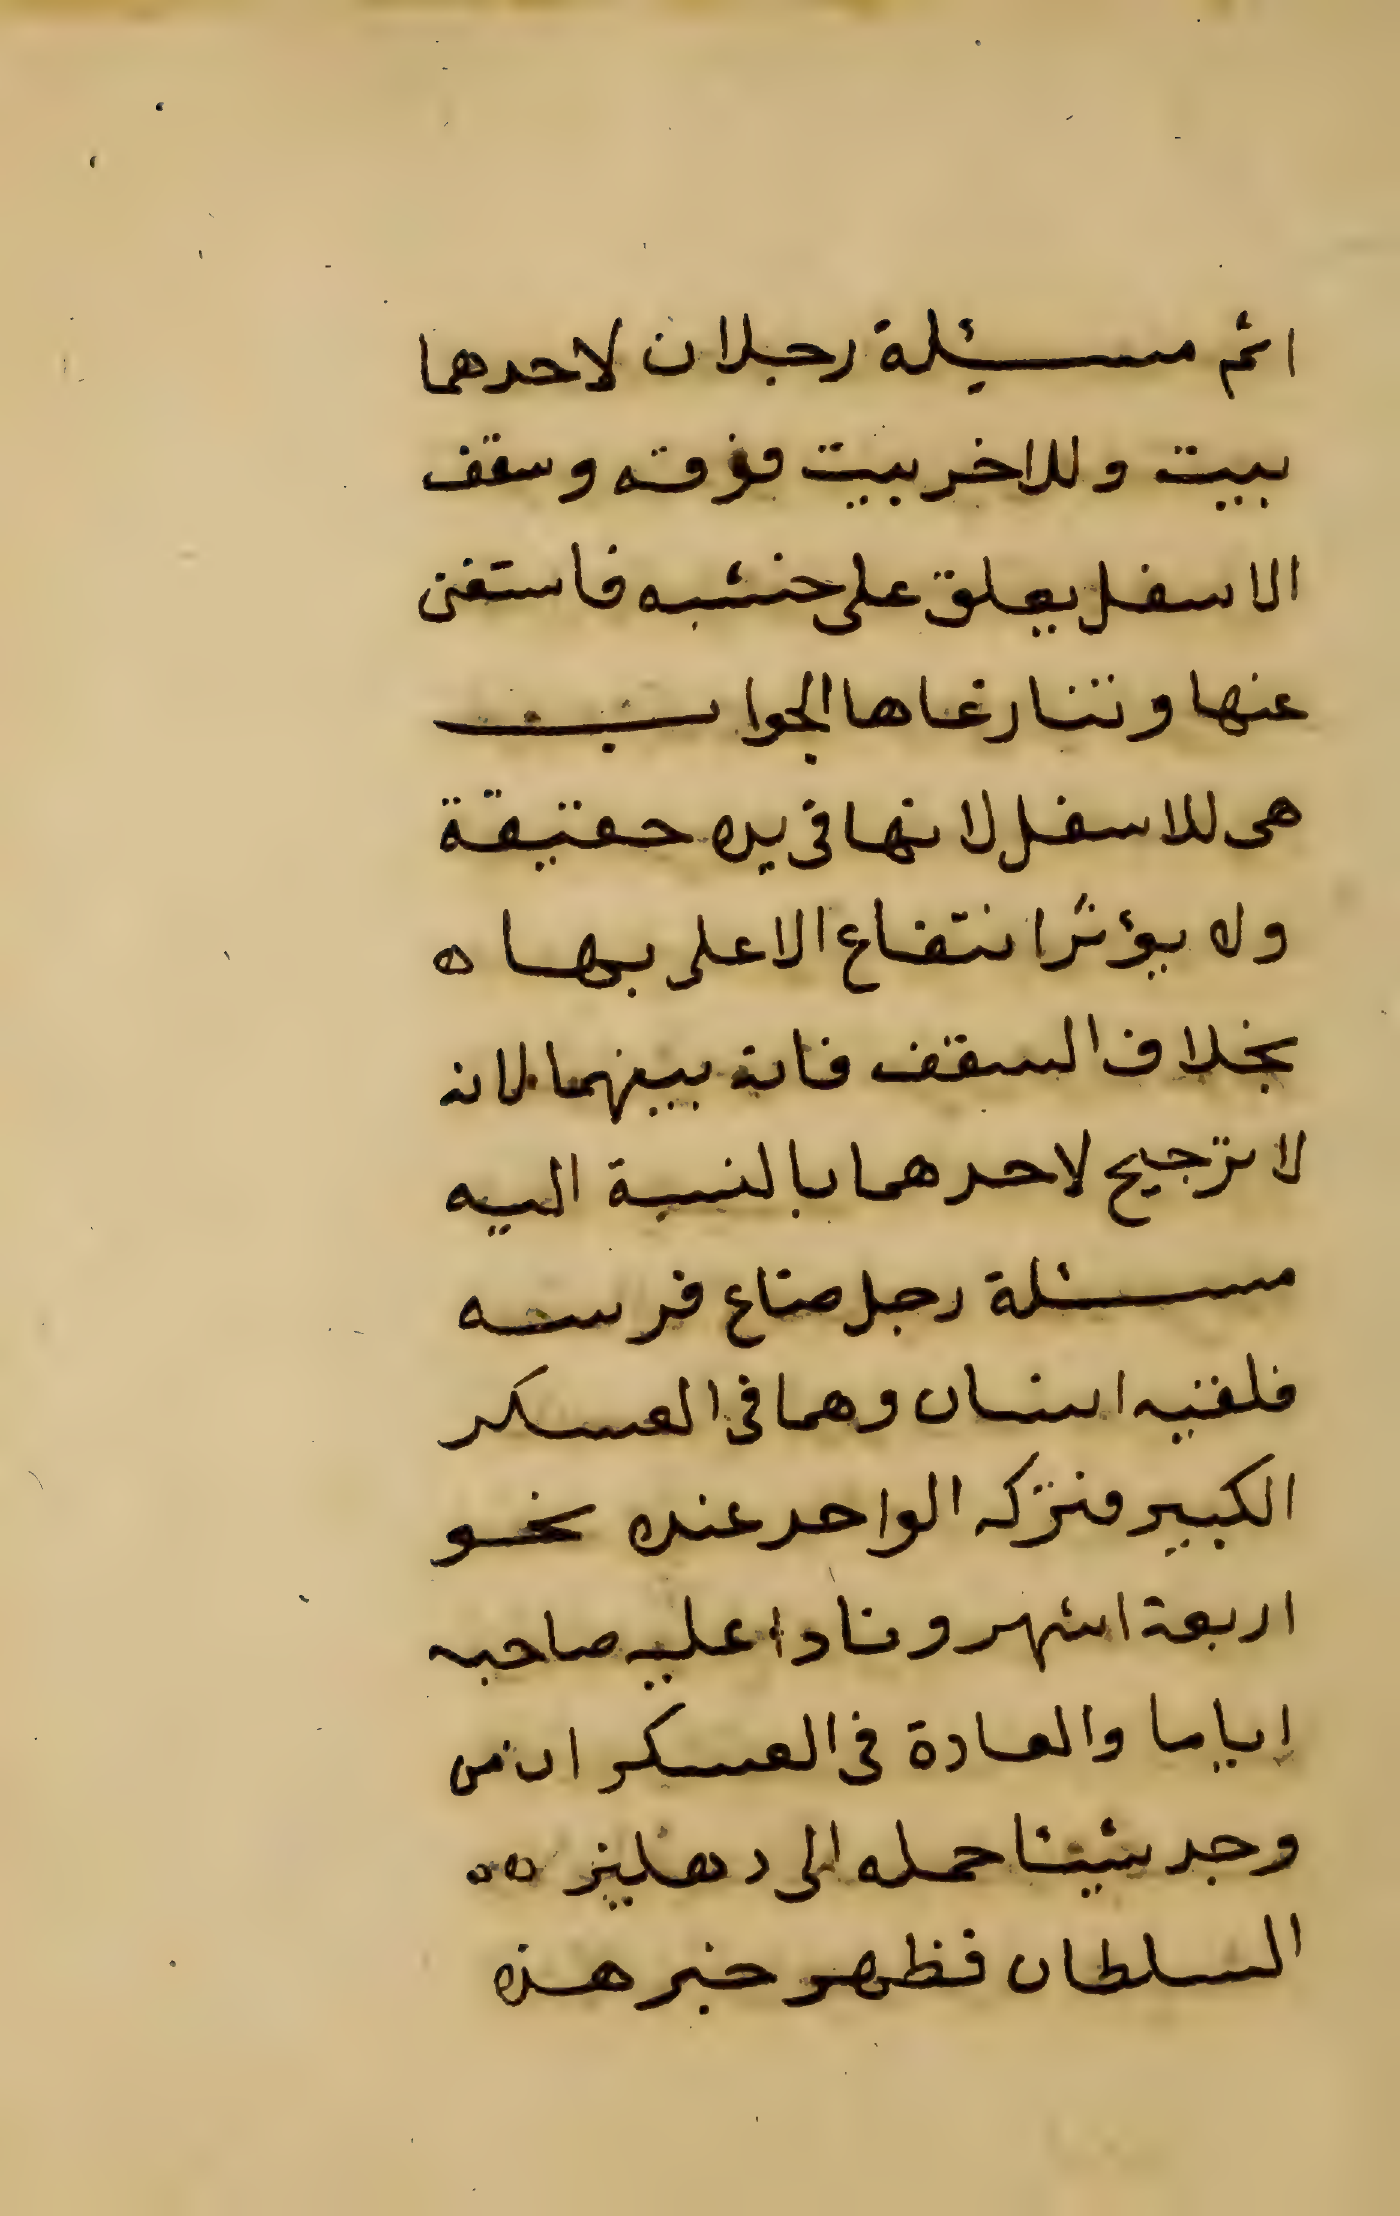 اثم مسئلة رجلان لاحدهما
بيت وللاخر بيت فوقه وسقف
الاسفل يعلق على خشبه فاستغنى
عنها وتنازعاها الجواب
هى للاسفل لانها فى يده حقيقة
ولا يؤثر انتفاع الاعلى بها ه
بخلاف السقف فانه بينهما لانه
لا ترجيح لاحدهما بالنسبة اليه
مسئلة رجل ضاع فرسه
فلقيه اثنان وهما فى العسكر
الكبير فتركه الواحد عنده نحو
اربعة اشهر ونادا عليه صاحبه
اياما والعادة فى العسكر ان من
وجد شيئا حمله الى دهليز هه
السلطان فظهر خبر هذه